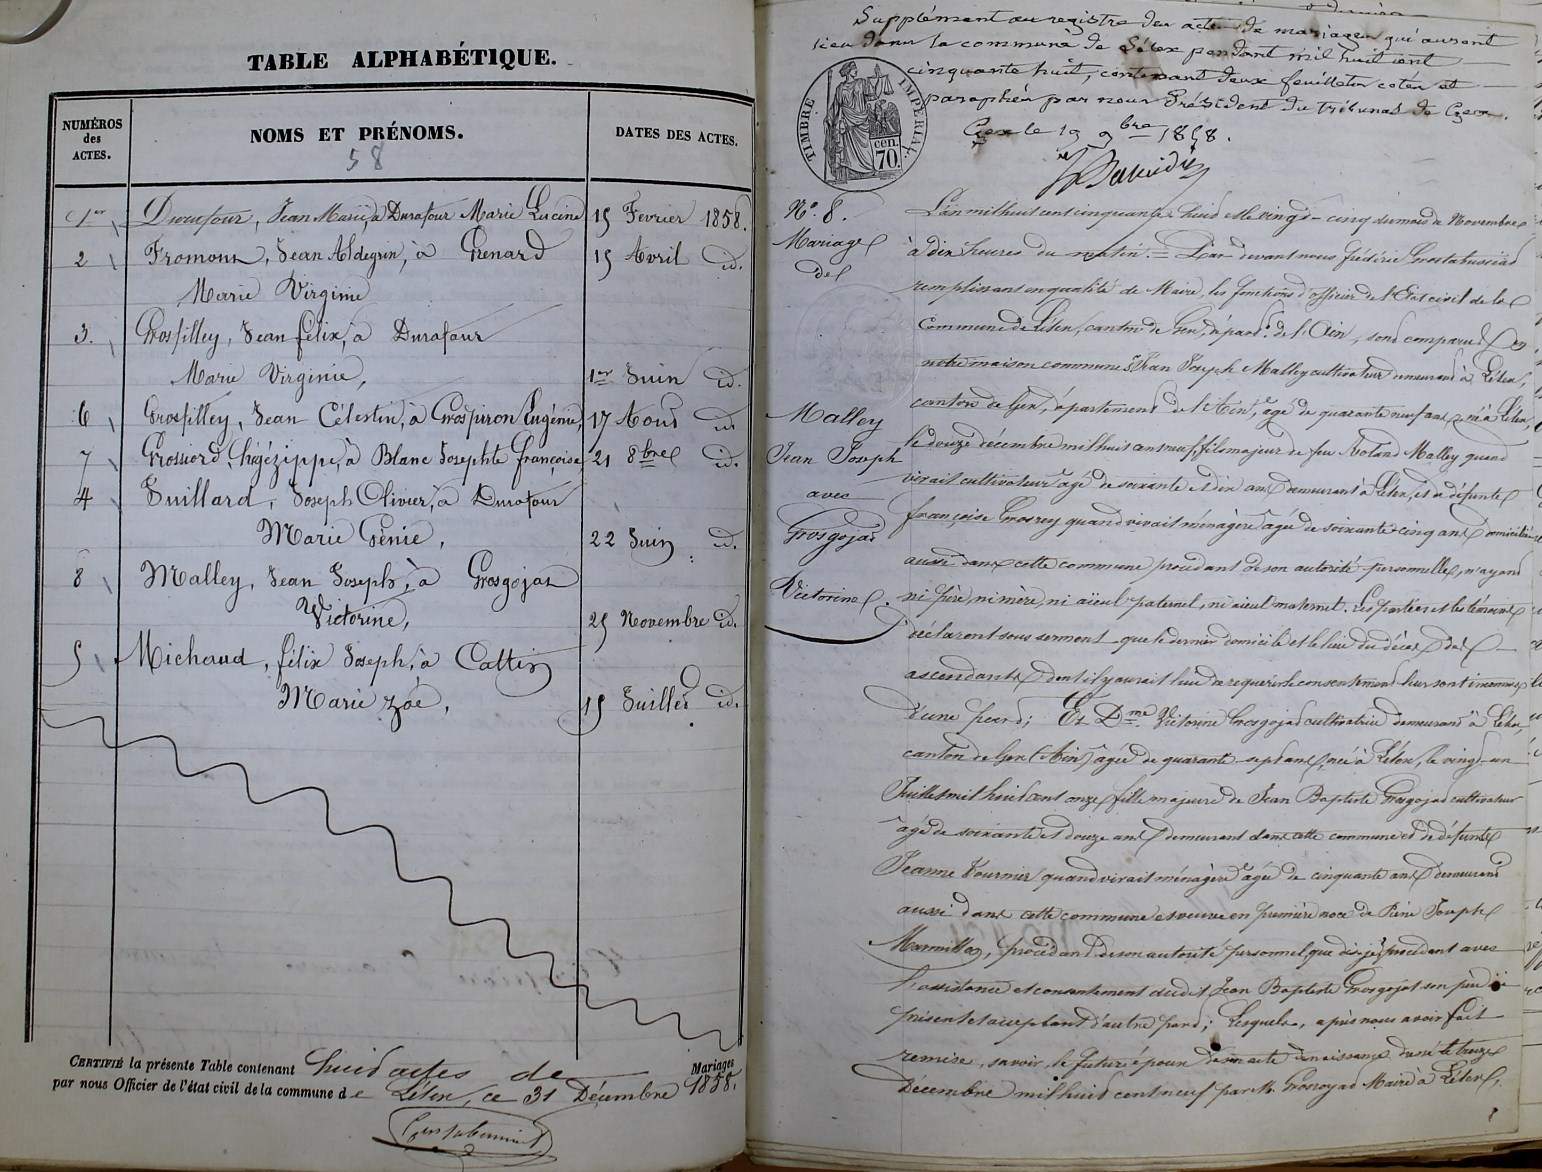 TABLE ALPHABÉTIQUE.
NUMÉROS des ACTES.
NOMS ET PRÉNOMS.
DATES DES ACTES.
58
1er Durafour, Jean Marie, à Durafour Marie Lucine 15 Fevrier 1858.
2 Fromont, Jean Aldegrin, à Renard 15 Avril id.
Marie Virginie
3. Grospilley, Jean félix, à Durafour
Marie Virginie, 1er Juin id.
6 Grospilley, Jean Célestin, à Grospiron Eugénie, 17 Aout id.
7 Grossiord, higézippe, à Blanc Josephte françoise 21 8bre id.
4 Juillard, Joseph Olivier, à Durafour
Marie Génie, 22 Juin id.
8 Malley, Jean Joseph, à Grosgojat
Victorine, 25 Novembre id.
5 Michaud, félix Joseph, à Cattin
Marie Zoé, 15 Juillet id.
CERTIFIÉ la présente Table contenant huit actes de Mariages
par nous Officier de l'état civil de la commune de Lélex, ce 31 Décembre 1858.
Supplément au registre des actes de mariages qui auront
lieu dans la commune de Lélex pendant mil huit cent
cinquante huit, contenant deux feuillets cotés et
paraphés par nous Président du tribunal de Gex.
Gex le 19 9bre 1858.
TIMBRE IMPÉRIAL
70. cen.
N°. 8.
Mariage
de
Malley
Jean Joseph
avec
Grosgojat
Victorine.
L'an mil huit cent cinquante huit et le vingt-cinq du mois de Novembre
à dix heures du matin. = Par devant nous frédéric
remplissant en qualité de Maire, les fonctions d'officier de l'Etat civil de la
Commune de Lélex, canton de Gex, départ. de l'Ain, sont comparus en
notre maison commune Jean Joseph Malley cultivateur demeurant à Lélex,
canton de Gex, département de l'Ain, âgé de quarante neuf ans, né à Lélex,
le douze décembre mil huit cent neuf, fils majeur de feu Roland Malley quand
vivait cultivateur âgé de soixante et dix ans demeurant à Lélex, et de défunte
françoise Grosrey quand vivait ménagère âgée de soixante-cinq ans domiciliée
aussi dans cette commune procédant de son autorité personnelle, n'ayant
ni père, ni mère, ni aïeul paternel, ni aïeul maternel. Les parties et les témoins
déclarent sous serment que le dernier domicile et le lieu du décès des
ascendants dont il y aurait lieu de requérir le consentement leur sont inconnus
d'une part; Et Dme Victorine Grosgojat cultivatrice demeurant à Lélex,
canton de Gex (Ain) âgée de quarante-sept ans, née à Lélex, le vingt-un
Juillet mil huit cent onze, fille majeure de Jean Baptiste Grosgojat cultivateur
âgé de soixante et douze ans demeurant dans cette commune et de défunte
Jeanne Tournier quand vivait ménagère âgée de cinquante ans demeurant
aussi dans cette commune et veuve en première noce de Joseph
Marmillon, procédant de son autorité personnel, que dis-je, procédant avec
l'assistance et consentement dudit Jean Baptiste Grosgojat son père ici
présent et acceptant d'autre part; Lesquels, après nous avoir fait
remise, savoir, le futur époux de son acte de naissance daté le treize
Décembre mil huit cent neuf par Mr Maire à Lélex,